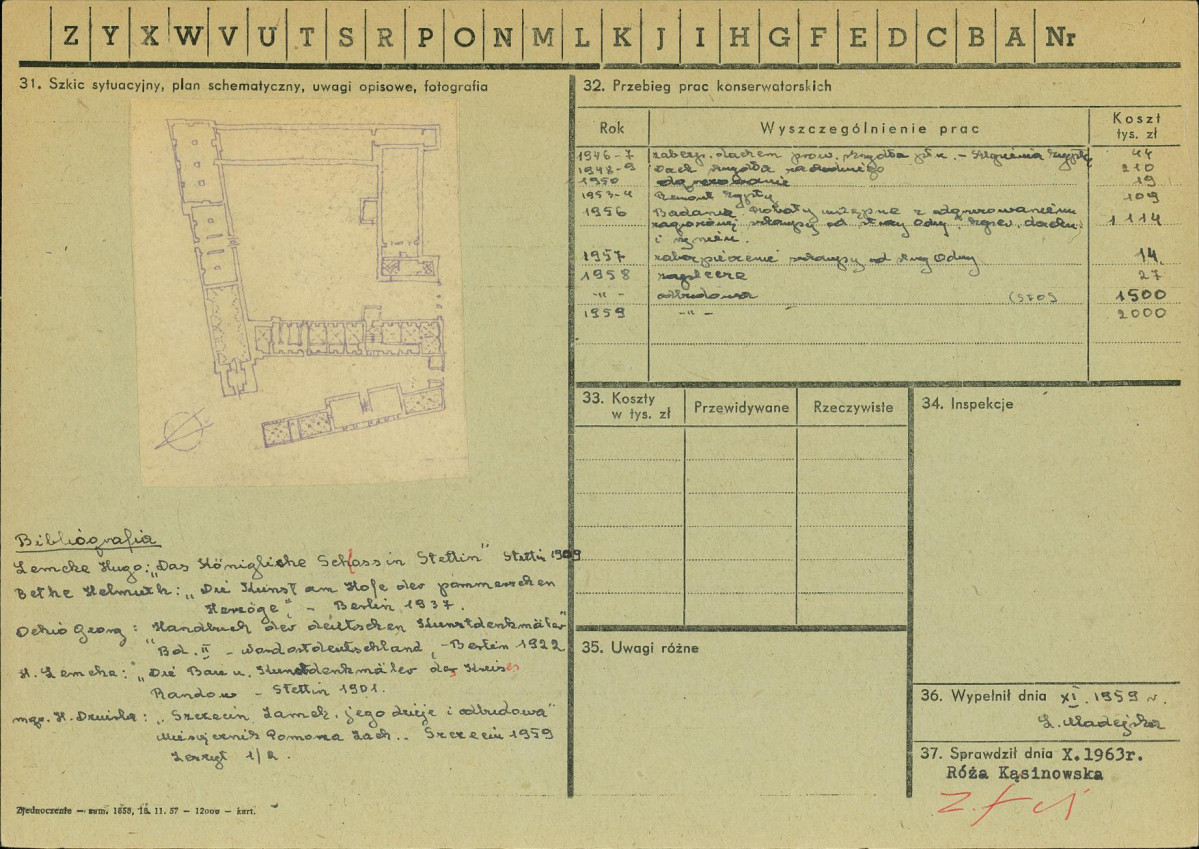 Z Y X W V U T S R P O N M L K J I H G F E D C B A Nr
31. Szkic sytuacyjny, plan schematyczny, uwagi opisowe, fotografia
Bibliografia
Lemcke Hugo: „Das Königliche Schlass in Stettin" Stettin 1909
Bethe Helmuth: „Die Kunst am Hofe der pommerschen
Herzöge", - Berlin 1937.
Dehio Georg: „Handbuch der deutschen Kunstdenkmäler"
Bd. II - Nordostdeutschland, - Berlin 1922
H. Lemcke: „Die Bau u. Kunstdenkmäler des Kreises
Randow - Stettin 1901.
mgr. H. „Szczecin Zamek, jego dzieje i odbudowa"
Miesięcznik Pomorza Zach.. Szczecin 1959
Zeszyt 1/2.
Zjednoczenie — zam. 1858, 16. 11. 57 — 12000 — kart.
32. Przebieg prac konserwatorskich
Rok Wyszczególnienie prac Koszt tys. zł
1946-7 zabezp. dachem prow. skrzydła płn. - 44
1948-9 Dach skrzydła zachodniego 210
1950 odgruzowanie 19
1953-4 Remont krypty 109
1956 Badania, roboty wstępne z odgruzowaniem 1114
skarpy od strony Odry,
i
1957 zabezpieczenie skarpy od str Odry 14.
1958 zaplecze 27
-"- odbudowa 1500
1959 -"- 2000
33. Koszty w tys. zł Przewidywane Rzeczywiste
34. Inspekcje
35. Uwagi różne
36. Wypełnił dnia XI. 1959 r.
Z. Madejska
37. Sprawdził dnia X.1963r.
Róża Kąsinowska